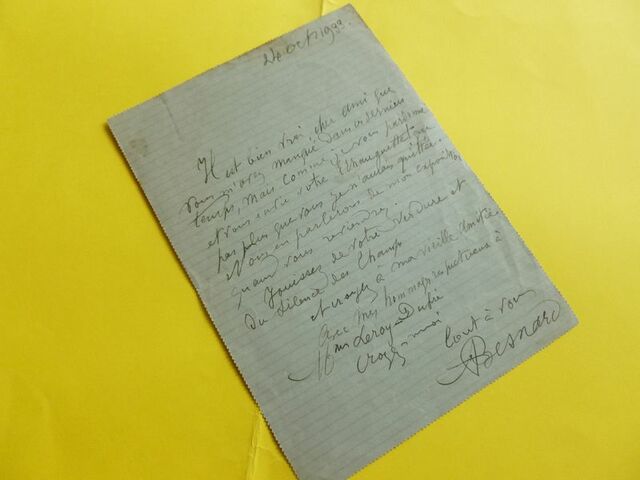 24 oct 1933.
Il est bien vrai, cher ami que
vous m'avez manqué dans ce dernier
temps, mais comme je vous pardonne
et vous envie votre
pas plus que vous je n'aurais quittée.
Nous en parlerons de mon exposition
quand vous reviendrez.
Jouissez de votre verdure et
du silence des champs
et croyez à ma vieille amitié.
Avec mes hommages respectueux à
Mme Leroy-Dupré
croyez-moi
tout à vous
ABesnard